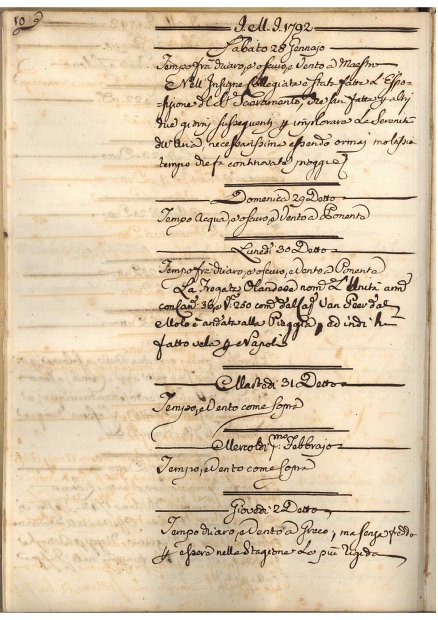 10
J. M. J. 1792
Sabato 28 Gennajo
Tempo frà chiaro, e oscuro, e Vento a Maestro
Nell' Insigne Collegiata è stata fatta l'Espo-
sizione di Sacramento, e altri
due giorni susseguenti p implorare la Serenità
dell' Aria necessarissima essendo ormai moltissimo
tempo che continovate piogge
Domenica 29 Detto
Tempo Acqua, e oscuro, e Vento a Ponente
Lunedì 30 Detto
Tempo frà chiaro, e oscuro, e Vento a Ponente
La Fregata Olandese nomta L'Unità armta
con Can: 36 e 250 comdta dal Cap Van dal
Molo è andata alla Piaggia, ed indi hà
fatto vela p Napoli
Martedì 31 Detto
Tempo, e Vento come sopra
Mercoldì pmo Febbrajo
Tempo, e Vento come sopra
Giovedì 2 Detto
Tempo chiaro, e Vento a Greco, ma senza freddo
p essere nella Stagione la più rigida